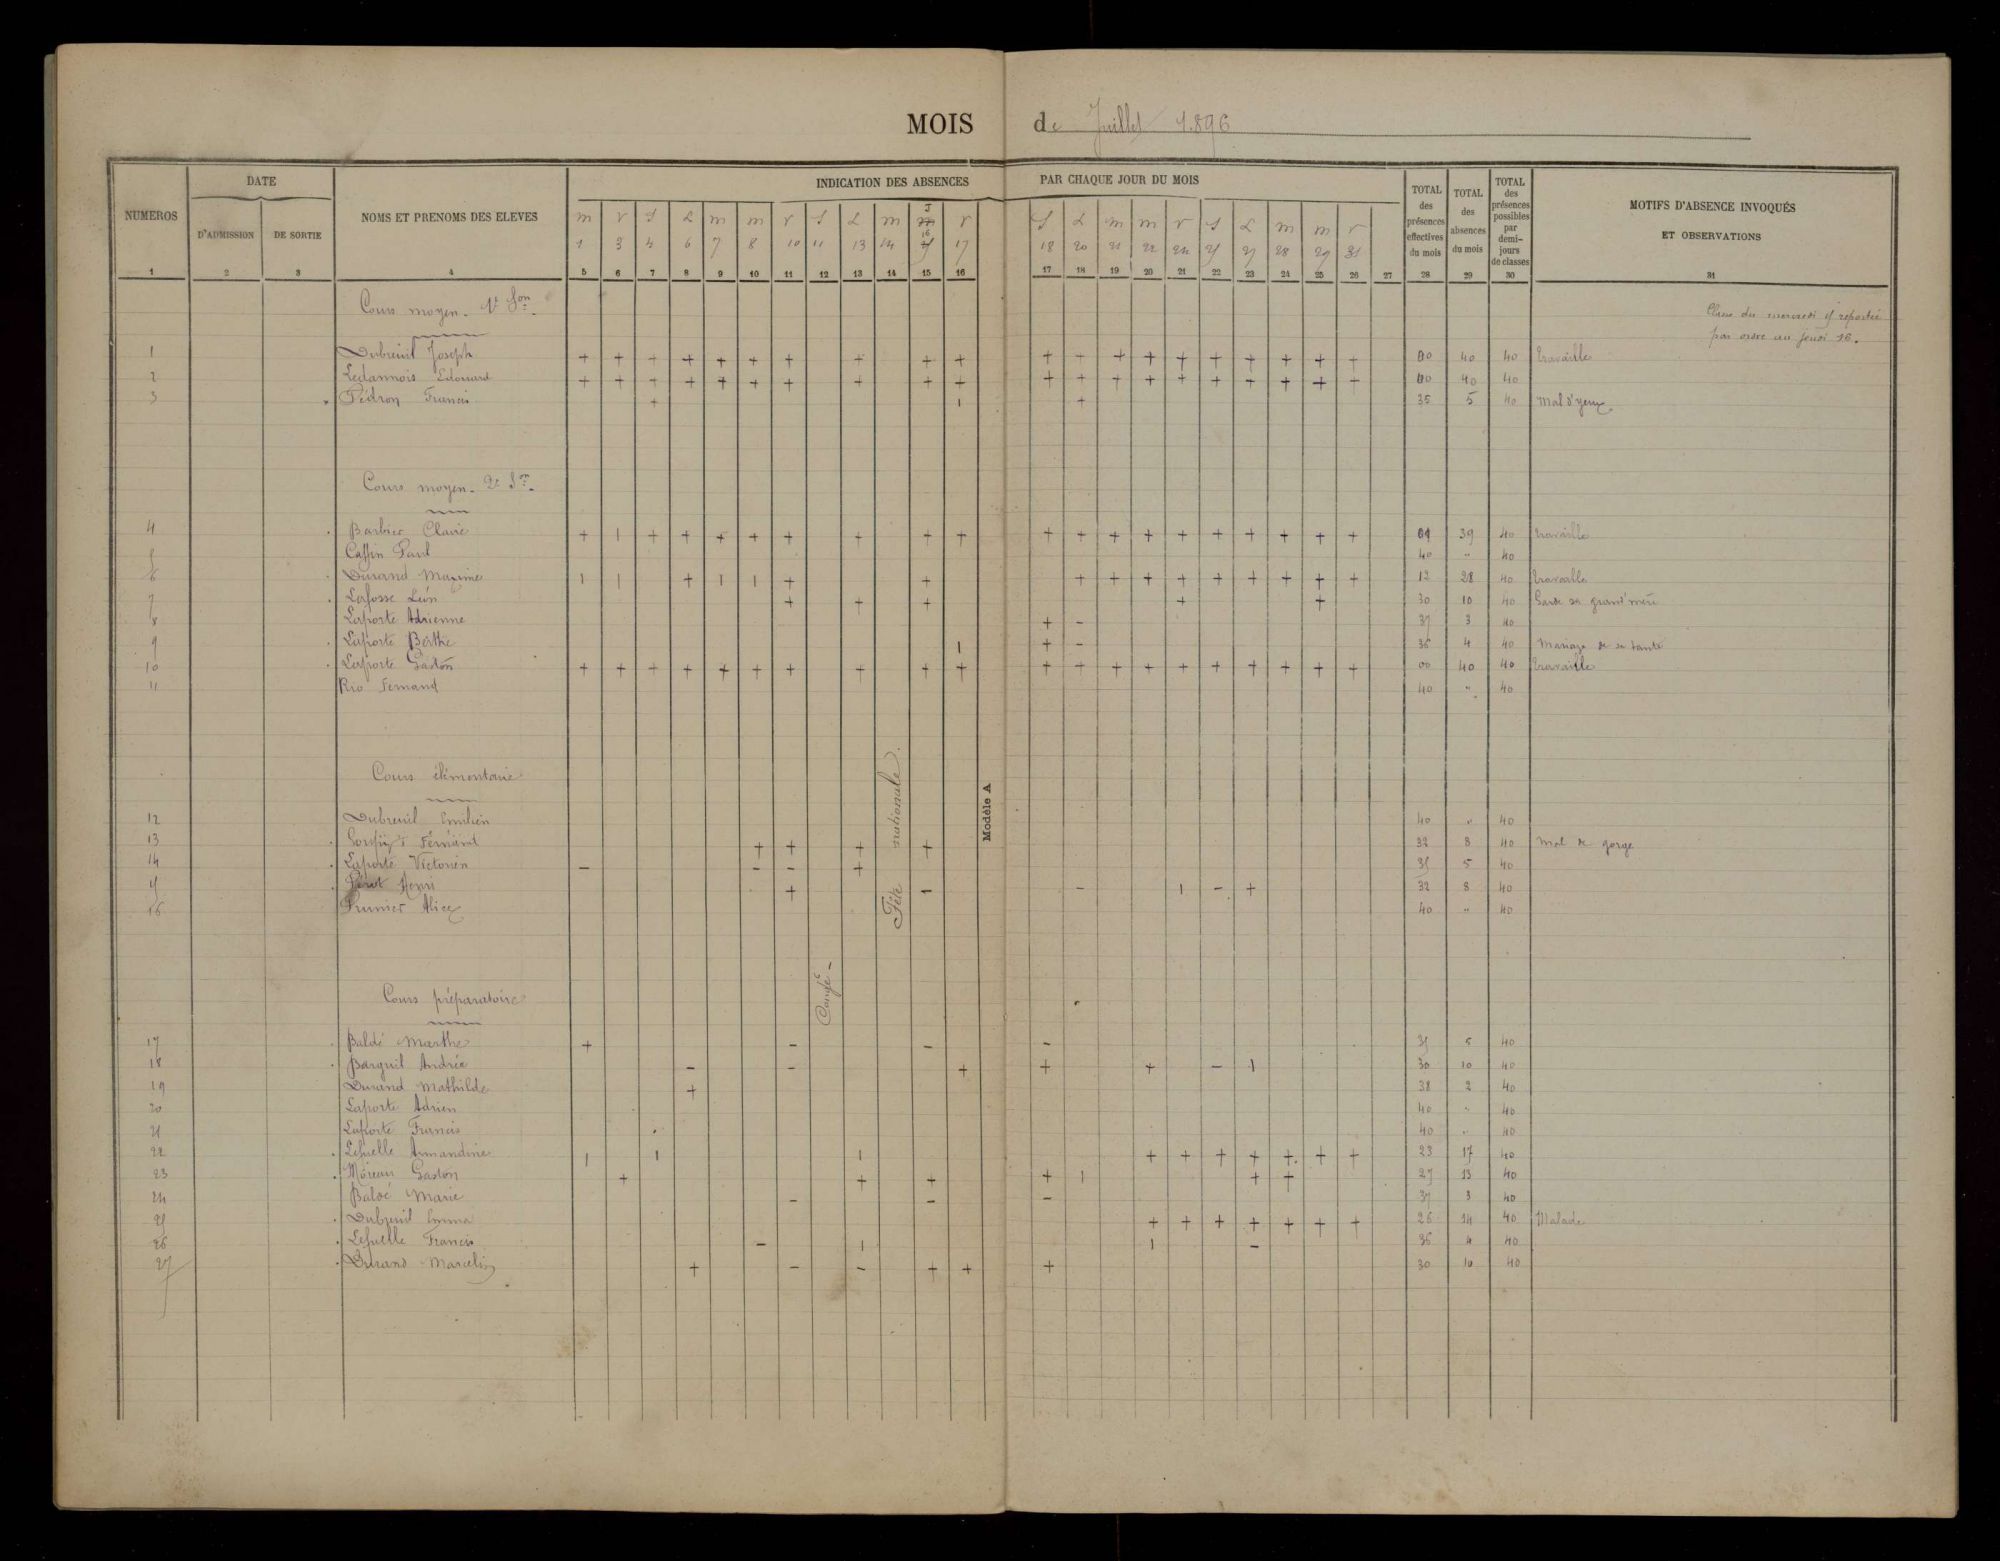 MOIS de Juillet 1896
NUMEROS DATE NOMS ET PRENOMS DES ELEVES INDICATION DES ABSENCES PAR CHAQUE JOUR DU MOIS TOTAL des présences effectives du mois TOTAL des absences du mois TOTAL des présences possibles par demi-jours de classes MOTIFS D'ABSENCE INVOQUÉS ET OBSERVATIONS
D'ADMISSION DE SORTIE
m v S L m m v S L m J v S L m m v S L m m v
1 3 4 6 7 8 10 11 13 14 16 17 18 20 21 22 24 25 27 28 29 31
1 2 3 4 5 6 7 8 9 10 11 12 13 14 15 16 17 18 19 20 21 22 23 24 25 26 27 28 29 30 31
Cours moyen - 1e Son
Classe du mercredi 15 reportée
par ordre au jeudi 16.
1 Dubreuil Joseph + + + + + + + + + + + + + + + + + + + + 00 40 40 travaille
2 Ledannois Edouard + + + + + + + + + + + + + + + + + + + + 00 40 40
3 Pédron Francis + ı + 35 5 40 Mal d'yeux
Cours moyen - 2e Son
4 Barbier Claire + ı + + + + + + + + + + + + + + + + + + 01 39 40 travaille
5 Cassin Paul 40 " 40
6 Durand Maxime ı ı + ı ı + + + + + + + + + + + 12 28 40 travaille
7 Lafosse Léon + + + + + 30 10 40 Garde sa grand'mère
8 Laporte Adrienne + - 37 3 40
9 Laporte Berthe ı + - 36 4 40 Mariage de sa tante
10 Laporte Gaston + + + + + + + + + + + + + + + + + + + + 00 40 40 travaille
11 Rio Fernand 40 " 40
Cours élémentaire
Modèle A
Fête nationale.
12 Dubreuil Emilien 40 " 40
13 Fernand + + + + 32 8 40 mal de gorge
14 Laporte Victorien - - - + 35 5 40
15 Henri + - - ı - + 32 8 40
16 Prunier Alice 40 " 40
Congé -
Cours préparatoire
17 Baldé Marthe + - - - 35 5 40
18 Barguil Andrée - - + + + - ı 30 10 40
19 Durand Mathilde + 38 2 40
20 Laporte Adrien 40 " 40
21 Laporte Francis 40 " 40
22 Lehuelle Armandine ı ı ı + + + + + + + 23 17 40
23 Moreau Gaston + + + + ı + + 27 13 40
24 Baldé Marie - - - 37 3 40
25 Dubreuil Emma + + + + + + + 26 14 40 Malade
26 Lehuelle Francis - ı ı - 36 4 40
27 Durand Marcelin + - - + + + 30 10 40